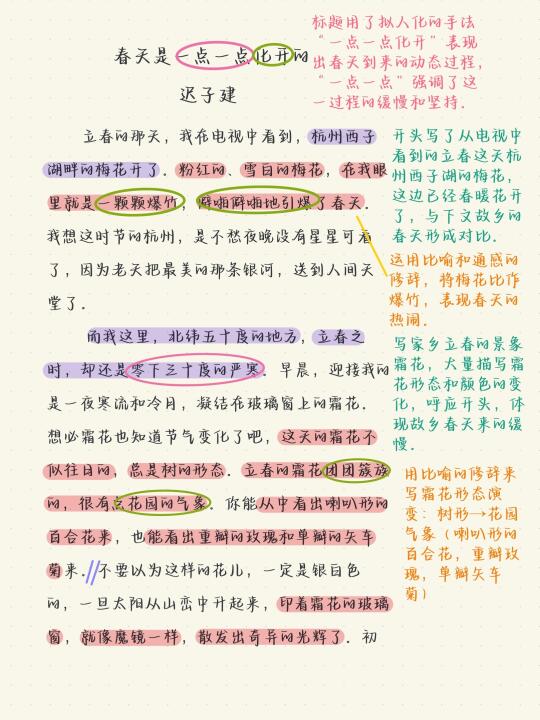 标题用了拟人化的手法
“一点一点化开”表现
出春天到来的动态过程,
“一点一点”强调了这
一过程的缓慢和坚持.
春天是一点一点化开的
迟子建
立春的那天,我在电视中看到,杭州西子
湖畔的梅花开了.粉红的、雪白的梅花,在我眼
里就是一颗颗爆竹,噼啪噼啪地引爆了春天.
我想这时节的杭州,是不愁夜晚没有星星可看
了,因为老天把最美的那条银河,送到人间天
堂了.
而我这里,北纬五十度的地方,立春之
时,却还是零下三十度的严寒.早晨,迎接我的
是一夜寒流和冷月,凝结在玻璃窗上的霜花.
想必霜花也知道节气变化了吧,这天的霜花不
似往日的,总是树的形态.立春的霜花团团簇簇
的,很有点花园的气象.你能从中看出喇叭形的
百合花来,也能看出重瓣的玫瑰和单瓣的矢车
菊来.不要以为这样的花儿,一定是银白色
的,一旦太阳从山峦中升起来,印着霜花的玻璃
窗,就像魔镜一样,散发出奇异的光辉了.初
开头写了从电视中
看到的立春这天杭
州西子湖的梅花,
这边已经春暖花开
了,与下文故乡的
春天形成对比.
这用比喻和通感的
修辞,将梅花比作
爆竹,表现春天的
热闹.
写家乡立春的景象
霜花,大量描写霜
花形态和颜色的变
化,呼应开头,体
现故乡春天来的缓
慢.
用比喻的修辞来
写霜花形态演
变:树形→花园
气象(喇叭形的
百合花,重瓣玫
瑰,单瓣矢车
菊)